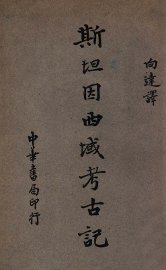 向達譯
斯坦因西域考古記
中華書局印行